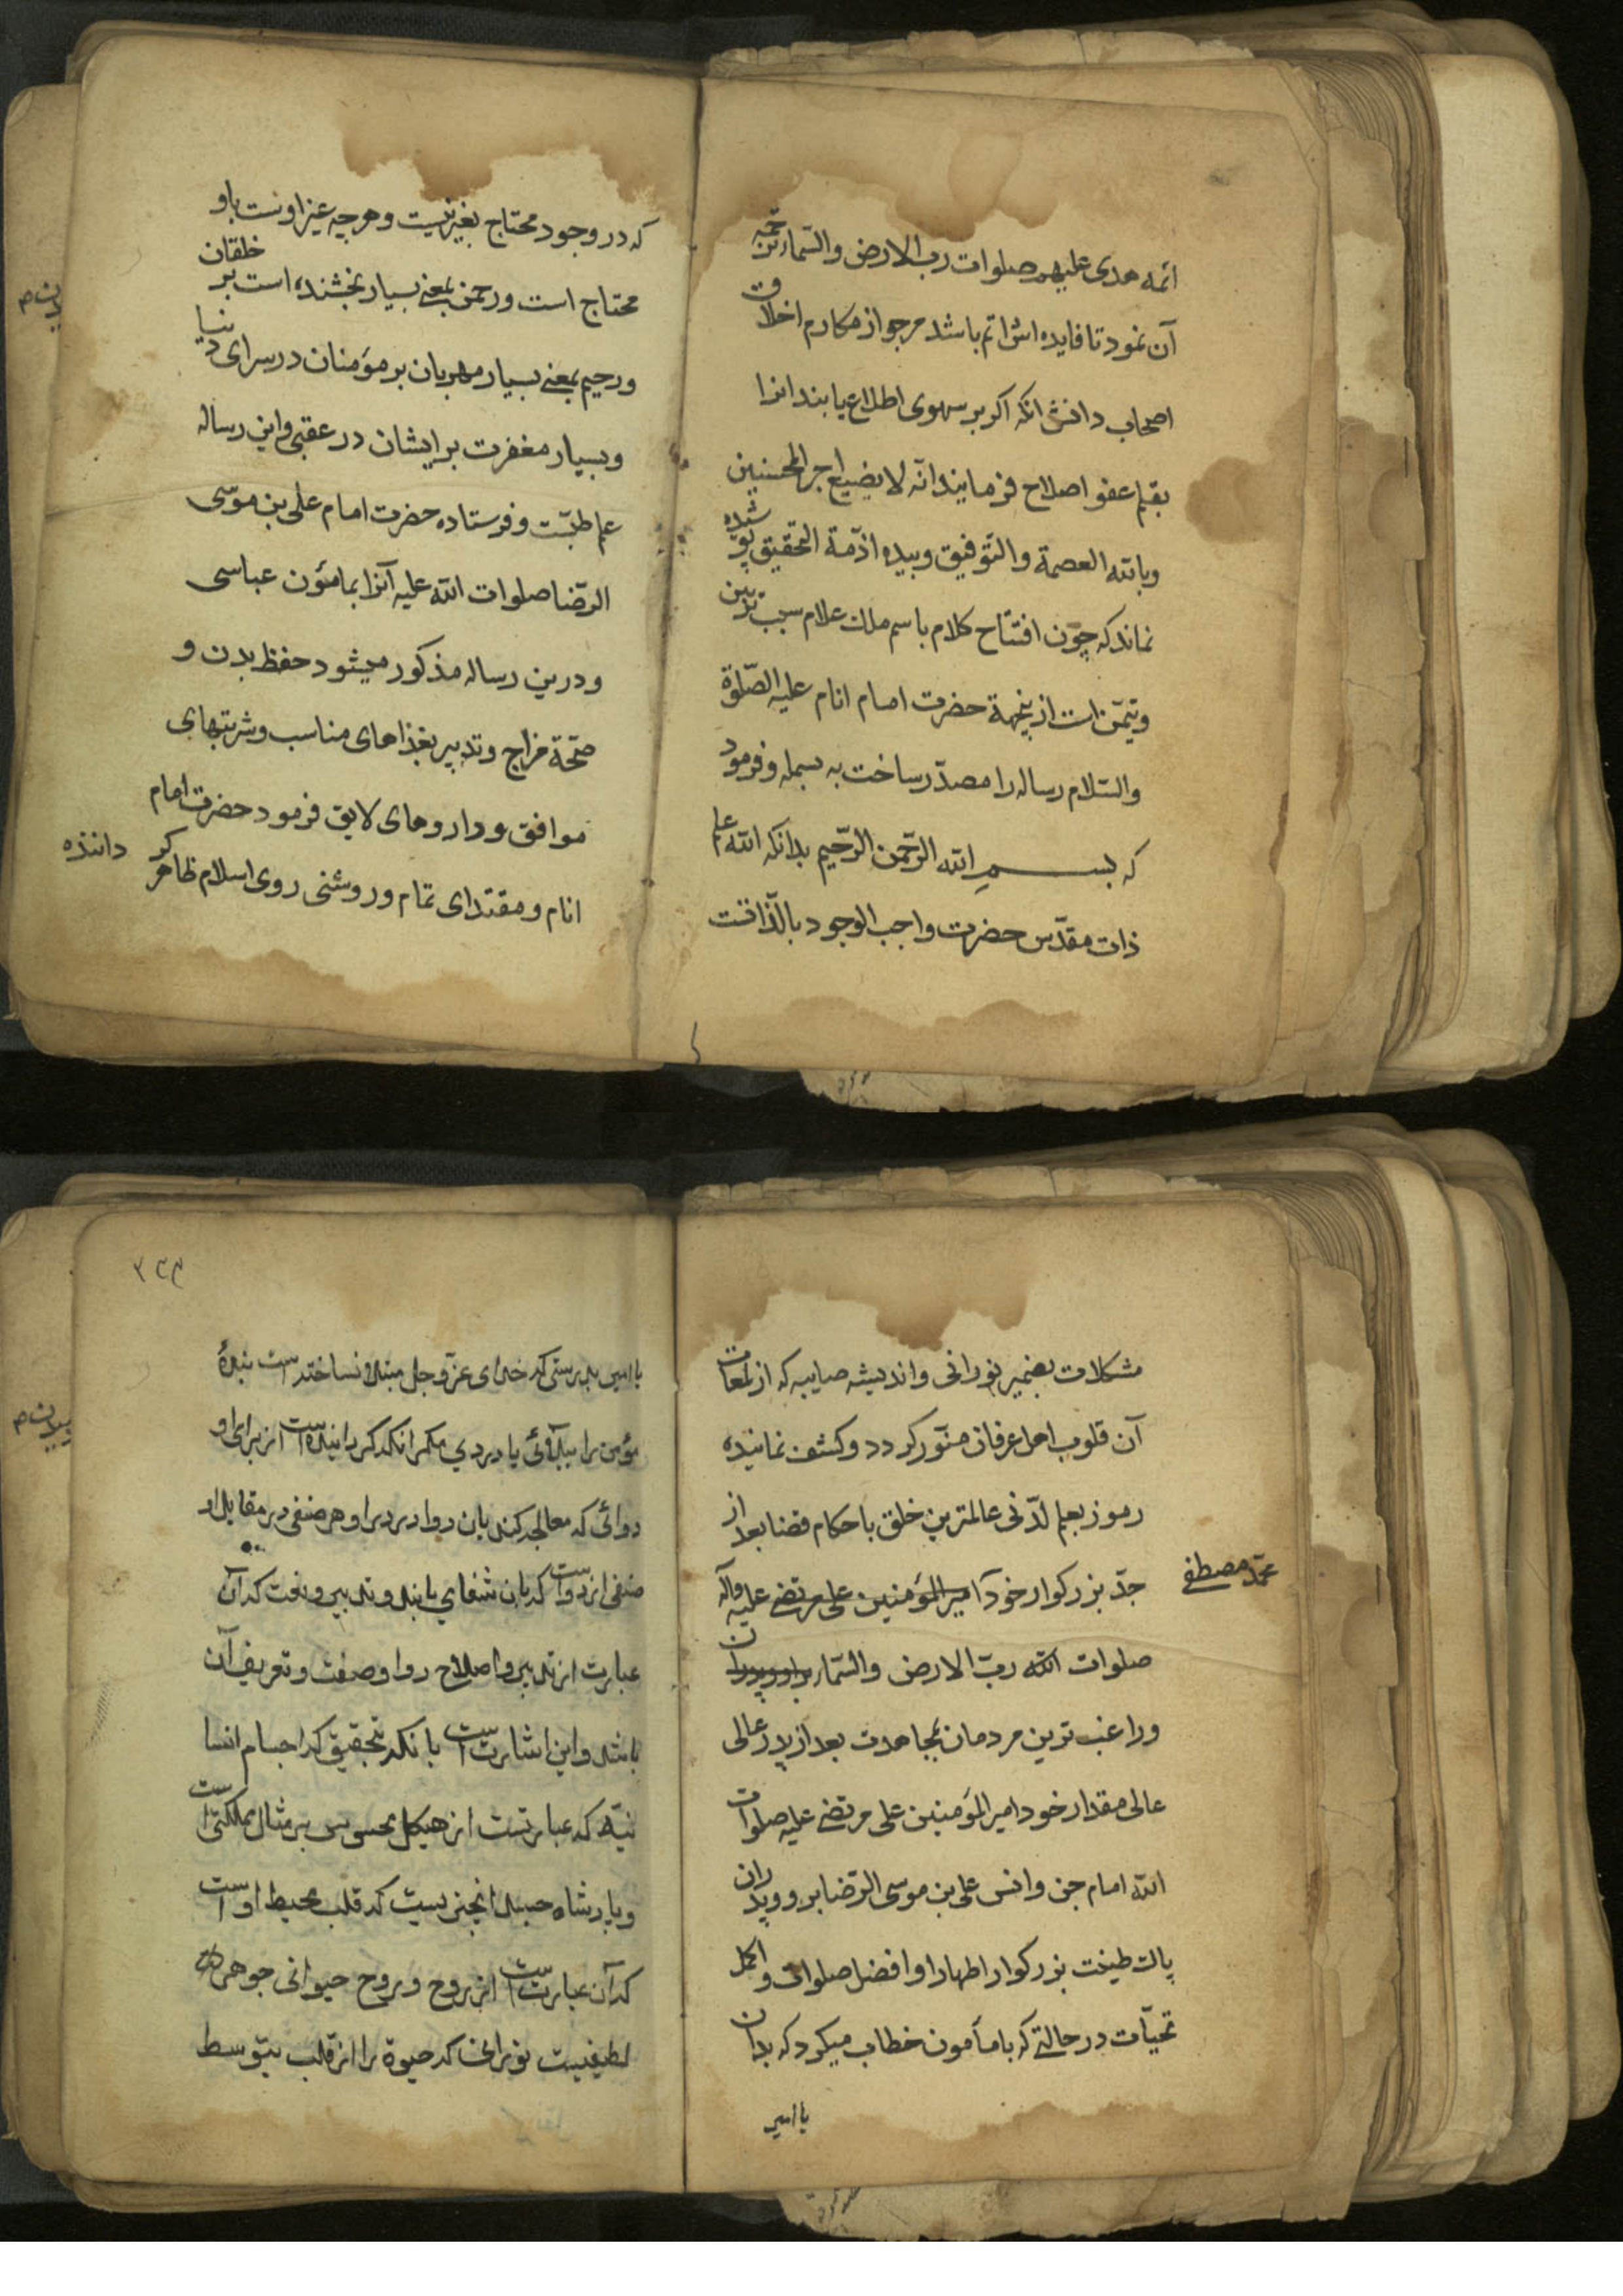 ائمه هدی علیهم صلوات رب الارض والسّماء ترجمه
آن نمود تا فایده اش اتم باشد مرجو از مکارم اخلاق
اصحاب دانش انکه اکر بر سهوی اطلاع یابند انرا
بقلم عفو اصلاح فرمایند انّه لا یضیع اجر المحسنین
وبالله العصمة والتّوفیق وبیده ازمّة التحقیق پوشیده
نماند که چون افتتاح کلام باسم ملک علام سبب تزیین
وتیمّن است از ینجهة حضرت امام انام علیه الصّلوة
والسّلام رساله را مصدّر ساخت به بسمله وفرمود
که بسم الله الرّحمن الرّحیم بدانکه الله علم
ذات مقدّس حضرت واجب الوجود بالذّاتست
که در وجود محتاج بغیر نیست وهرچه غیر اوست باو
محتاج است ورحمن بمعنی بسیار بخشنده است بر خلقان
ورحیم بمعنی بسیار مهربان بر مؤمنان در سرای دنیا
وبسیار مغفرت بر ایشان در عقبی واین رساله
علم طبّست وفرستاده حضرت امام علی بن موسی
الرّضا صلوات الله علیه آنرا بمامون عباسی
ودرین رساله مذکور میشود حفظ بدن و
صحّة مزاج وتدبیر بغذاهای مناسب وشربتهای
موافق وداروهای لایق فرمود حضرت امام
انام ومقتدای تمام وروشنی روی اسلام ظاهر کر داننده
مشکلات بضمیر نورانی واندیشه صایبه که از لمعات
آن قلوب اهل عرفان منوّر کردد وکشف نماینده
رموز بعلم لدّنی عالمترین خلق باحکام قضا بعد از
جدّ بزرکوار خود امیر المؤمنین علی مرتضی علیه وآله
محمّد مصطفی
صلوات الله ربّ الارض والسّماء
وراغب ترین مردمان بمجاهدت بعد از پدر عالی
عالی مقدار خود امیر المؤمنین علی مرتضی علیه صلوات
الله امام جن وانس علی بن موسی الرّضا بر و وپدران
پاک طینت بزرکوار اطهار او افضل صلوات و اکمل
تحیّات در حالتی که با مأمون خطاب میکرد که بدان
یا امیر
۳۲۳
یا امیر بدرستی که خدای عزّ وجل مبتلا نساخته است بندهٔ
مؤمن را ببلائی یا دردی مکر انکه کردانیده است از برای او
دوائی که معالجه کند بان دوا درد را وهر صنفی در مقابل او
صنفی از دواست که بان شفا یابند وتدبیر ونعت که آن
عبارت از تدبیر واصلاح دوا وصفت وتعریف آن
باشد واین اشارت است بانکه بتحقیق که اجسام انسا
نیّه که عبارتست از هیکل محسوس بر مثال مملکتی است
وپادشاه جسد انچیزیست که قلب محیط اوست
که آن عبارت است از روح وروح حیوانی جوهر
لطیفیست نورانی که حیوة را از قلب بتوسط